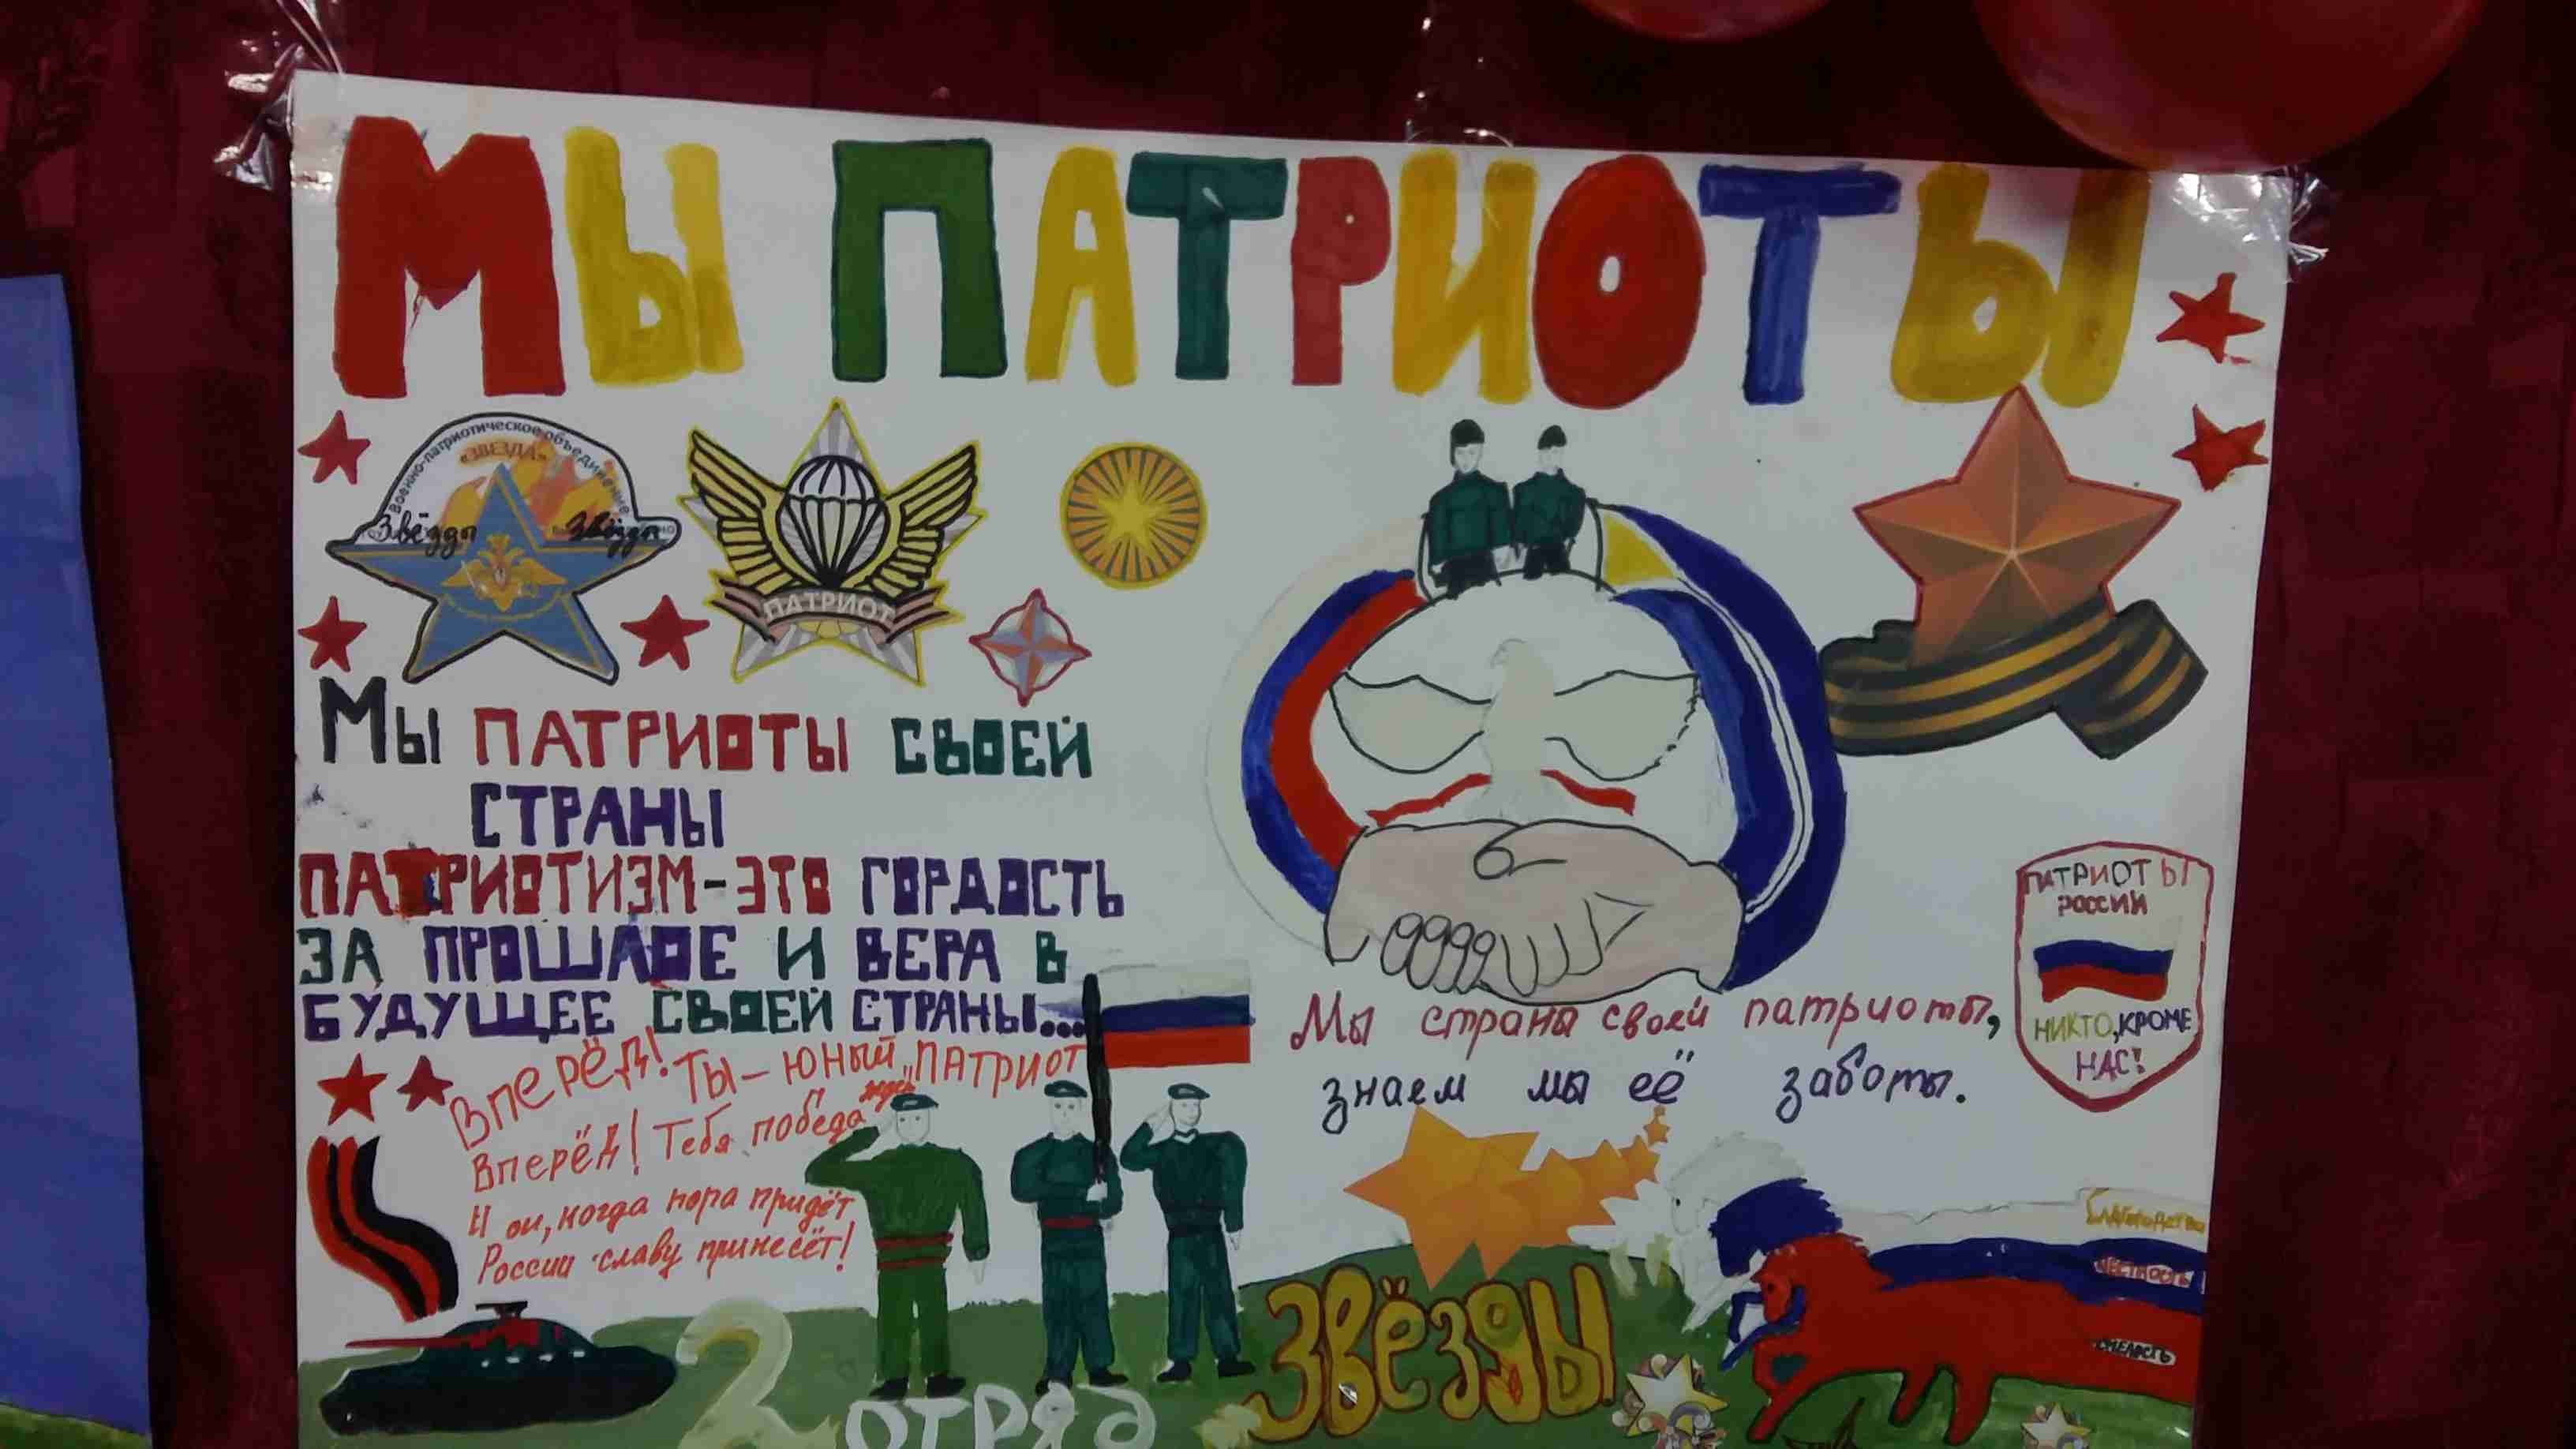 МЫ ПАТРИОТЫ
Военно-патриотическое объединение
«ЗВЕЗДА»
Звёзды Звёзды
ПАТРИОТ
МЫ ПАТРИОТЫ СВОЕЙ
СТРАНЫ
ПАТРИОТИЗМ-ЭТО ГОРДОСТЬ
ЗА ПРОШЛОЕ И ВЕРА В
БУДУЩЕЕ СВОЕЙ СТРАНЫ...
Вперёд! Ты - юный „ПАТРИОТ"
Вперёд! Тебя победа ждёт
И он, когда пора придёт
России славу принесёт!
Мы страны своей патриоты,
знаем мы её заботы.
ПАТРИОТЫ
РОССИИ
НИКТО, КРОМЕ
НАС!
БЛАГОРОДСТВО
ЧЕСТНОСТЬ
СМЕЛОСТЬ
2 ОТРЯД
ЗВЁЗДЫ